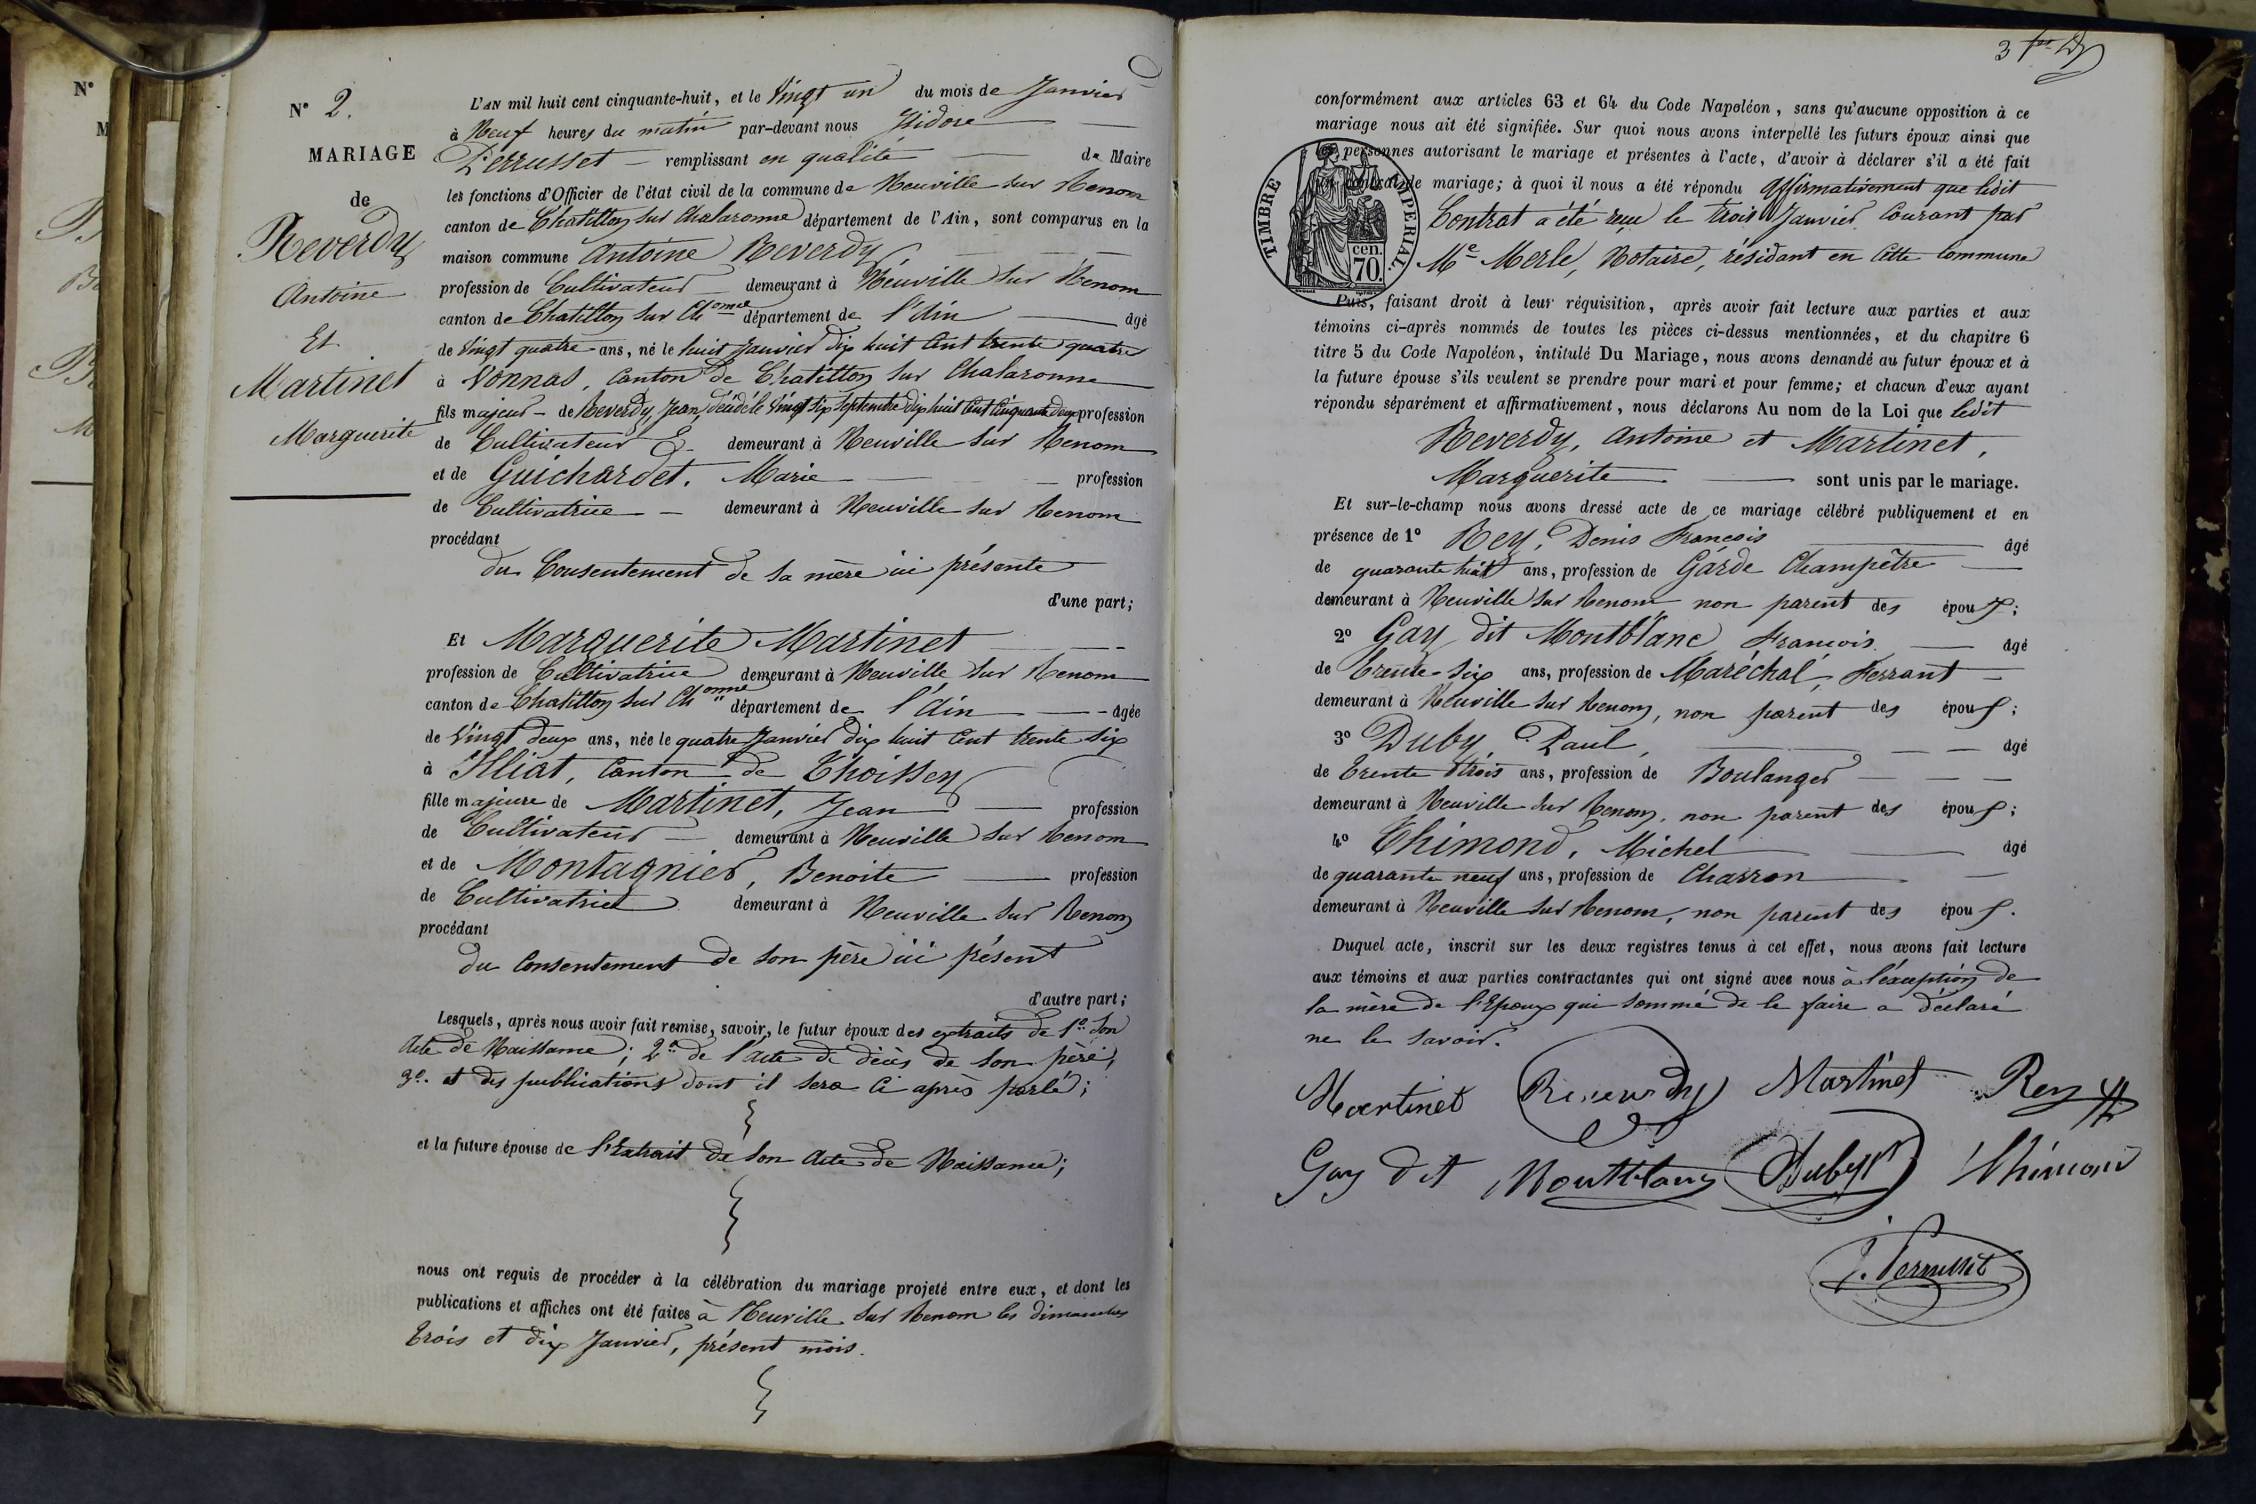 N°
M
N° 2.
MARIAGE
de
Reverdy
Antoine
Et
Martinet
Marguerite
L'AN mil huit cent cinquante-huit, et le Vingt un du mois de Janvier
à Neuf heures du matin par-devant nous Isidore
Perrusset — remplissant en qualité de Maire
les fonctions d'Officier de l'état civil de la commune de Neuville sur Renom
canton de Chatillon sur Chalaronne département de l'Ain, sont comparus en la
maison commune Antoine Reverdy
profession de Cultivateur demeurant à Neuville sur Renom
canton de Chatillon sur Ch.onne département de l'Ain âgé
de Vingt quatre ans, né le huit Janvier dix huit Cent trente quatre
à Vonnas, Canton de Chatillon sur Chalaronne
fils majeur - de Reverdy, Jean, décédé le Vingt six Septembre dix huit Cent Cinquante deux profession
de Cultivateur & demeurant à Neuville sur Renom
et de Guichardet, Marie profession
de Cultivatrice demeurant à Neuville sur Renom
procédant
du Consentement de sa mère ici présente
d'une part;
Et Marguerite Martinet
profession de Cultivatrice demeurant à Neuville sur Renom
canton de Chatillon sur Ch.onne département de l'Ain âgée
de Vingt deux ans, née le quatre Janvier dix huit Cent trente six
à Illiat, Canton de Thoissey
fille majeure de Martinet, Jean profession
de Cultivateur demeurant à Neuville sur Renom
et de Montagnier, Benoite profession
de Cultivatrice demeurant à Neuville sur Renom
procédant
du Consentement de son père ici présent
d'autre part;
Lesquels, après nous avoir fait remise, savoir, le futur époux des extraits de 1° Son
Acte de Naissance; 2° de l'acte de décès de son père;
3°. et des publications dont il sera ci après parlé;
et la future épouse de l'Extrait de son Acte de Naissance;
nous ont requis de procéder à la célébration du mariage projeté entre eux, et dont les
publications et affiches ont été faites à Neuville sur Renom les dimanches
trois et dix Janvier, présent mois.
3
conformément aux articles 63 et 64 du Code Napoléon, sans qu'aucune opposition à ce
mariage nous ait été signifiée. Sur quoi nous avons interpellé les futurs époux ainsi que
les personnes autorisant le mariage et présentes à l'acte, d'avoir à déclarer s'il a été fait
un contrat de mariage; à quoi il nous a été répondu affirmativement que ledit
Contrat a été reçu le trois Janvier Courant par
Me Merle, Notaire, résidant en cette Commune
TIMBRE IMPERIAL.
cen.
70.
Puis, faisant droit à leur réquisition, après avoir fait lecture aux parties et aux
témoins ci-après nommés de toutes les pièces ci-dessus mentionnées, et du chapitre 6
titre 5 du Code Napoléon, intitulé Du Mariage, nous avons demandé au futur époux et à
la future épouse s'ils veulent se prendre pour mari et pour femme; et chacun d'eux ayant
répondu séparément et affirmativement, nous déclarons Au nom de la Loi que ledit
Reverdy, Antoine et Martinet,
Marguerite sont unis par le mariage.
Et sur-le-champ nous avons dressé acte de ce mariage célébré publiquement et en
présence de 1° Rey, Denis François âgé
de quarante huit ans, profession de Garde Champêtre
demeurant à Neuville sur Renom non parent des époux;
2° Gay dit Montblanc François âgé
de trente-six ans, profession de Maréchal, Ferrant
demeurant à Neuville sur Renom, non parent des époux;
3° Duby, Paul, âgé
de trente trois ans, profession de Boulanger
demeurant à Neuville sur Renom, non parent des époux;
4° Thimond, Michel âgé
de quarante neuf ans, profession de Charron
demeurant à Neuville sur Renom, non parent des époux.
Duquel acte, inscrit sur les deux registres tenus à cet effet, nous avons fait lecture
aux témoins et aux parties contractantes qui ont signé avec nous à l'éxception de
la mère de l'Epoux qui sommé de le faire a déclaré
ne le savoir.
Martinet Reverdy Martinet Rey
Gay dit Montblanc Duby Thimond
J. Perrusset